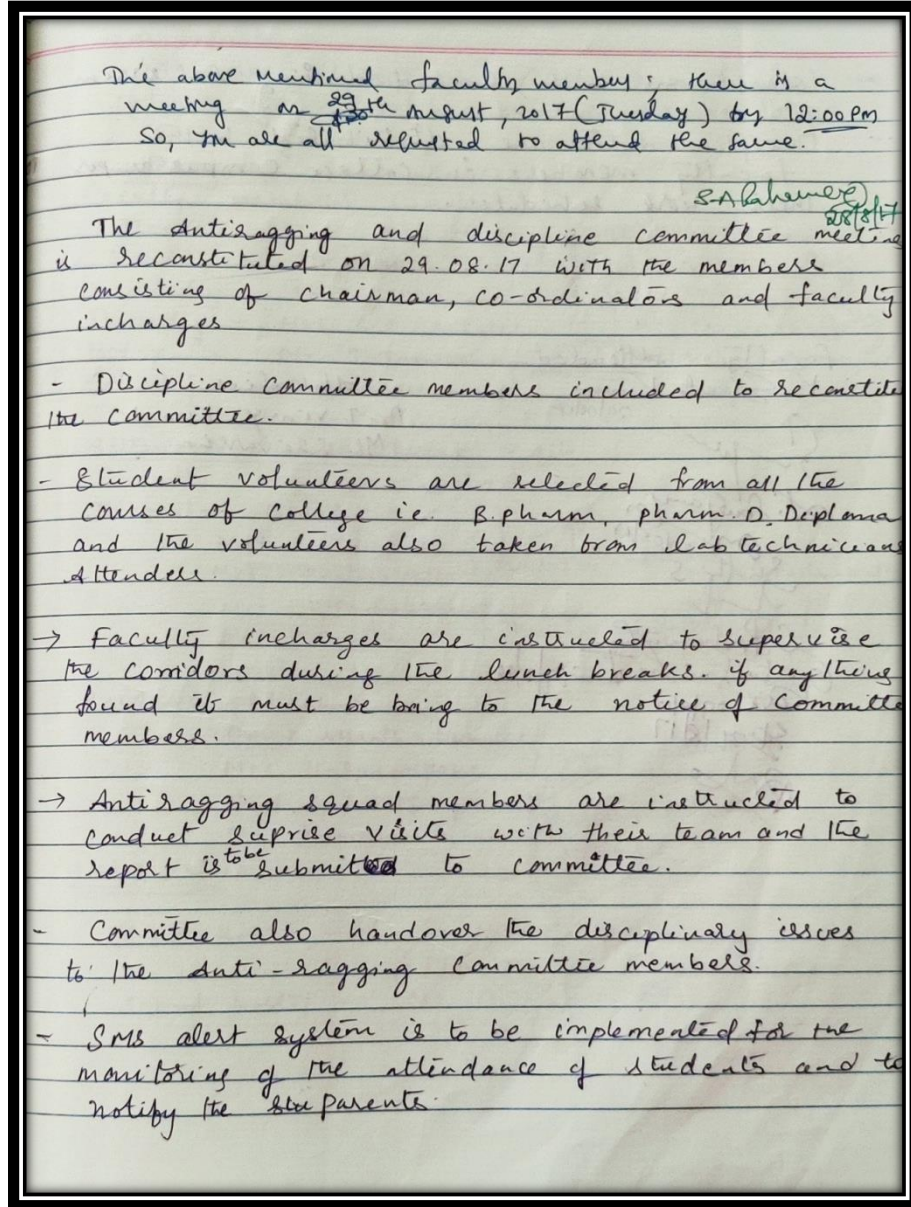 The above mentioned faculty members; there is a
meeting on 29th August, 2017 (Tuesday) by 12:00 PM
So, you are all requested to attend the same.
28/8/17
The Antiragging and discipline committee meeting
is reconstituted on 29.08.17 with the members
consisting of chairman, co-ordinators and faculty
incharges
- Discipline committee members included to reconstite
the committee.
- Student volunteers are selected from all the
courses of College i.e. B.pharm, pharm.D, Diploma
and the volunteers also taken from lab technicians
Attenders.
→ Faculty incharges are instructed to supervise
the corridors during the lunch breaks. if any thing
found it must be bring to the notice of Committe
members.
→ Anti ragging squad members are instructed to
conduct suprise visits with their team and the
report is to be submitted to committee.
- Committee also handover the disciplinary issues
to the Anti-ragging Committee members.
- SMS alert system is to be implemented for the
monitoring of the attendance of students and to
notify the parents.